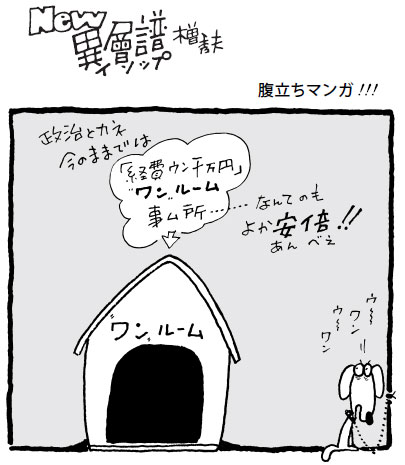 New
異層譜
イソップ
橧秣
腹立ちマンガ!!!
政治とカネ
今のままでは
「経費ウン千万円」
"ワン"ルーム
事ム所………なんてのも
よか安倍!!
あんべえ
"ワン"ルーム
ウ〜
ワン
ウ〜
ワン